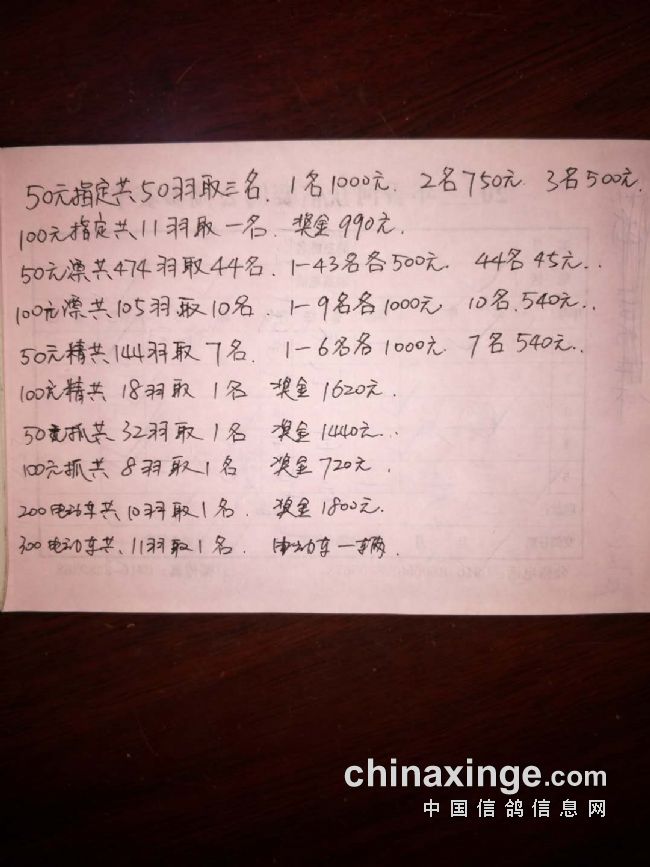 50元指定共50羽取三名. 1名1000元. 2名750元. 3名500元.
100元指定共11羽取一名. 奖金990元.
50元漂共474羽取44名. 1-43名各500元. 44名45元..
100元漂共105羽取10名. 1-9名各1000元. 10名.540元..
50元精共144羽取7名. 1-6名各1000元. 7名540元..
100元精共18羽取1名 奖金1620元.
50元抓共32羽取1名 奖金1440元..
100元抓共8羽取1名 奖金720元.
200电动车共10羽取1名. 奖金1800元.
300电动车共.11羽取1名. 电动车一辆.
chinaxinge.com
中国信鸽信息网